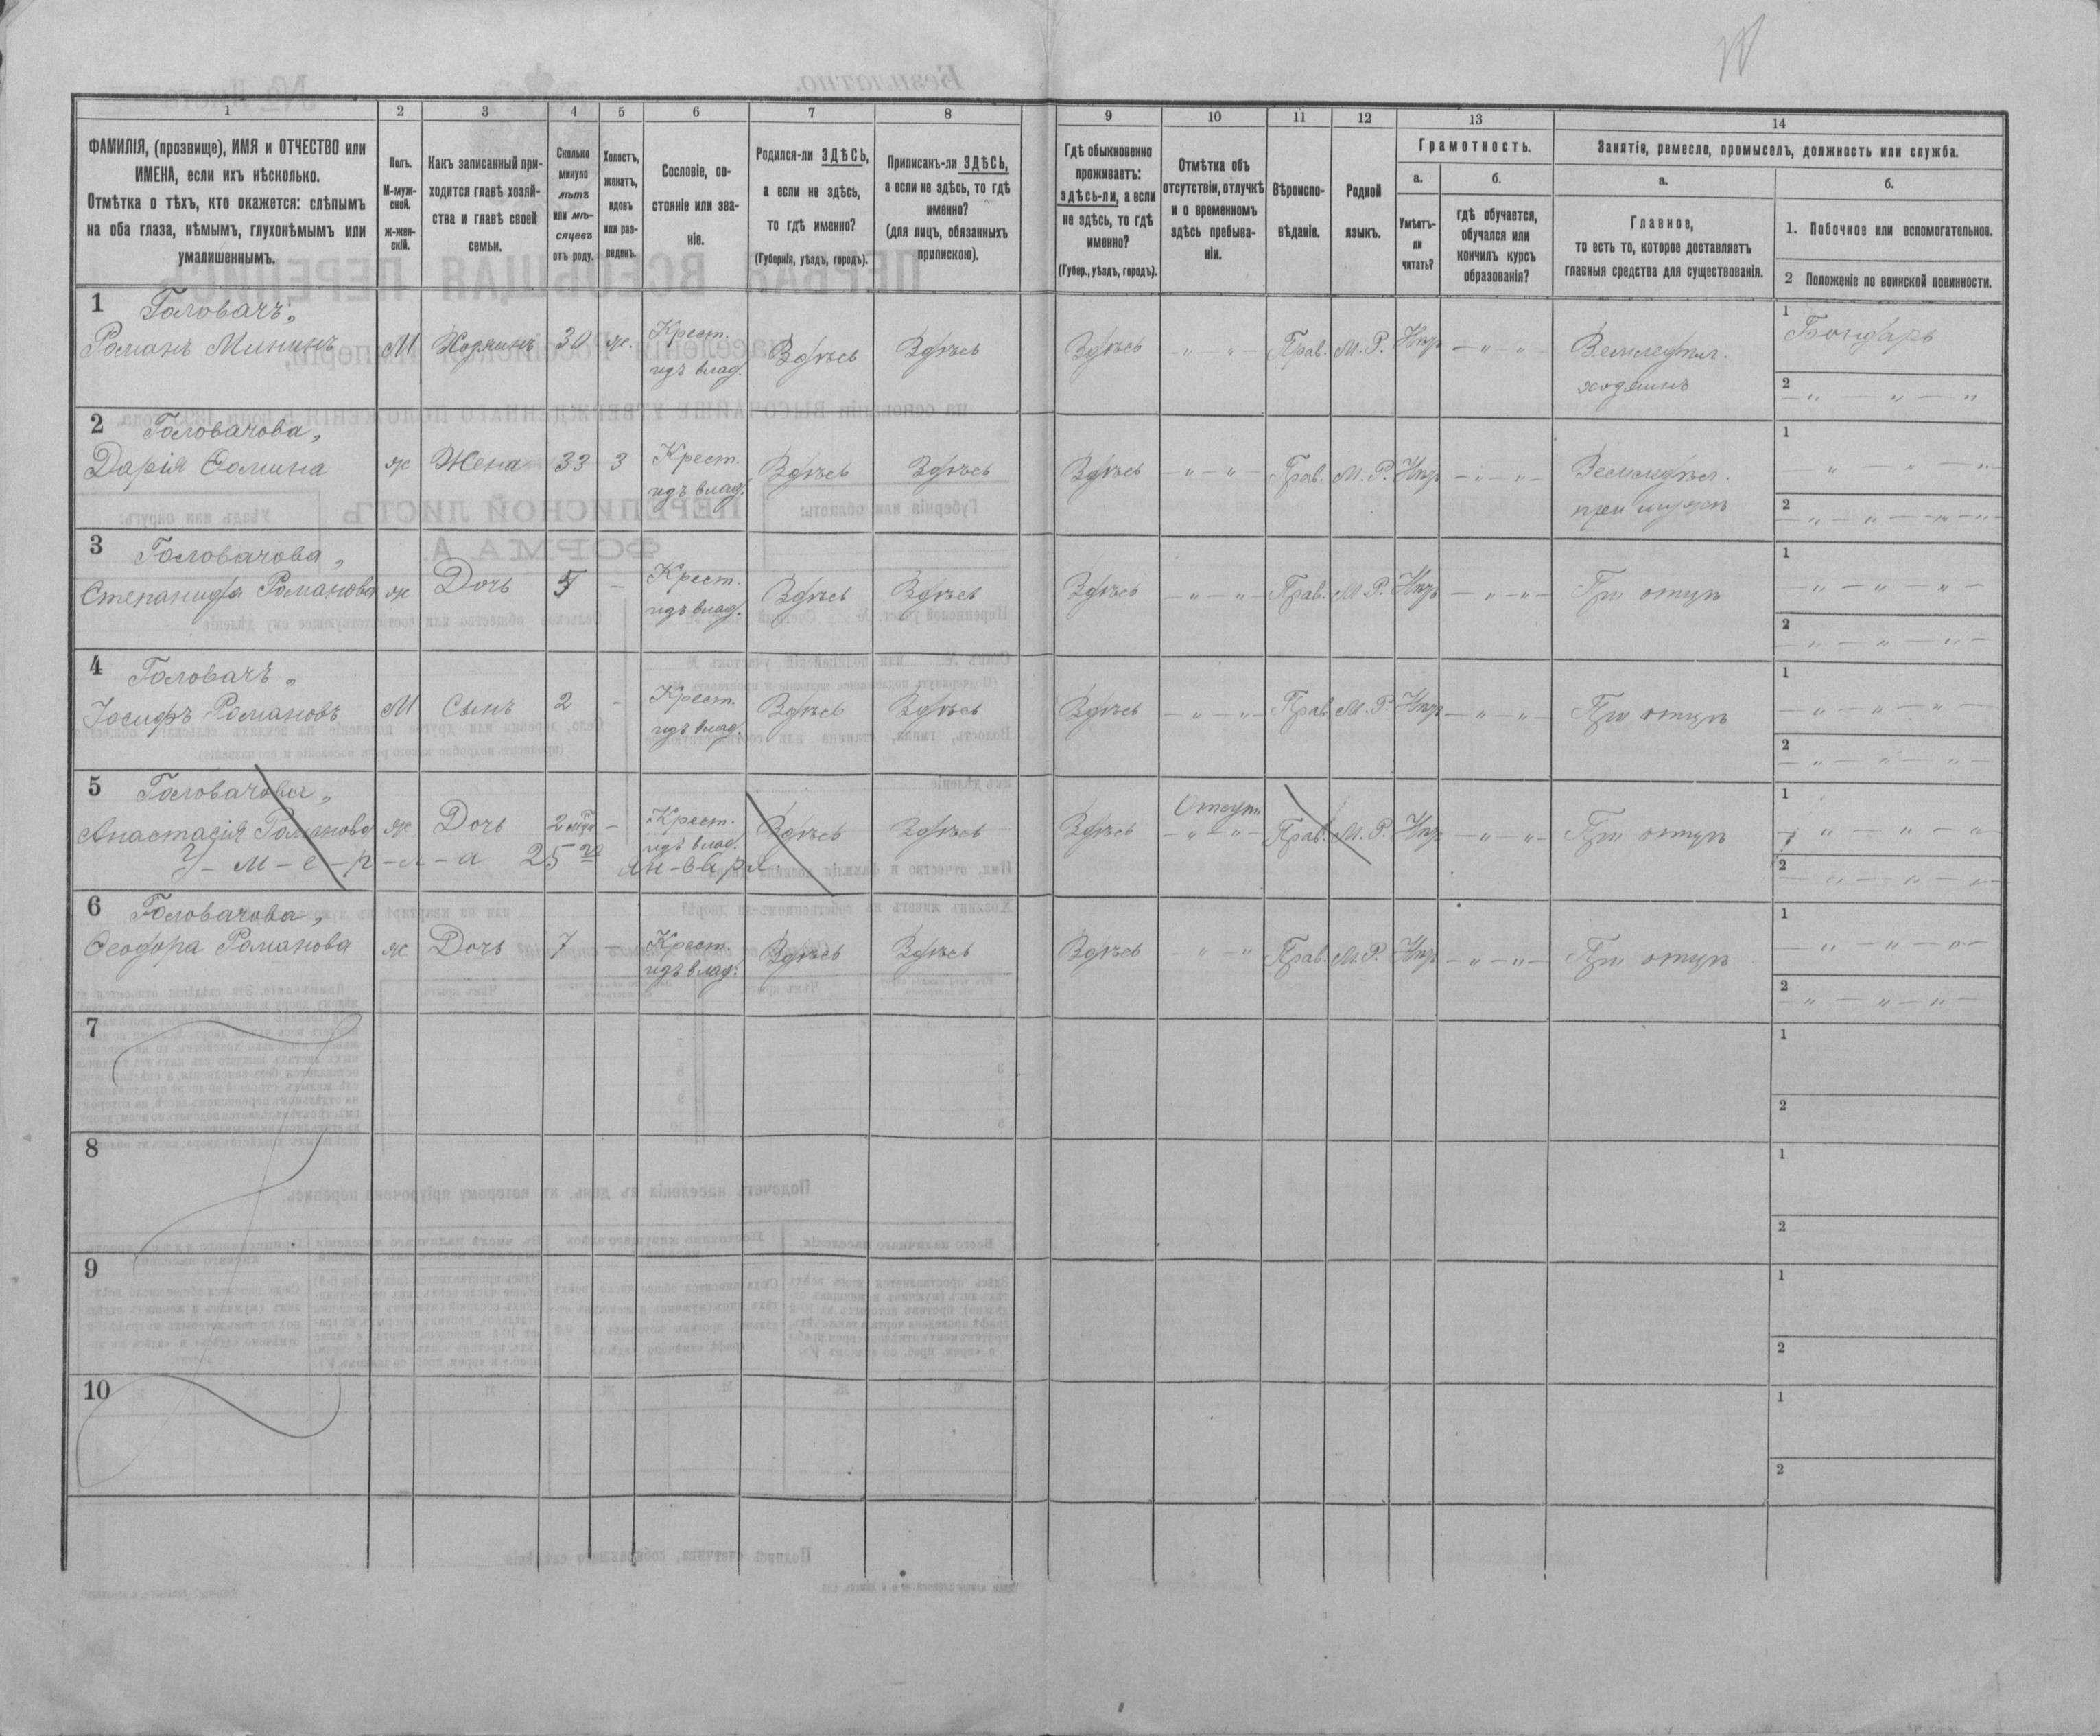 1
2
3
4
5
6
7
8
9
10
11
12
13
14
ФАМИЛІЯ, (прозвище), ИМЯ и ОТЧЕСТВО или
ИМЕНА, если ихъ нѣсколько.
Отмѣтка о тѣхъ, кто окажется: слѣпымъ
на оба глаза, нѣмымъ, глухонѣмымъ или
умалишеннымъ.
Полъ.
М-муж-
ской.
ж-жен-
скій.
Какъ записанный при-
ходится главѣ хозяй-
ства и главѣ своей
семьи.
Сколько
минуло
лѣтъ
или мѣ-
сяцевъ
отъ роду.
Холостъ,
женатъ,
вдовъ
или раз-
веденъ.
Сословіе, со-
стояніе или зва-
ніе.
Родился-ли ЗДѢСЬ,
а если не здѣсь,
то гдѣ именно?
(Губернія, уѣздъ, городъ).
Приписанъ-ли ЗДѢСЬ,
а если не здѣсь, то гдѣ
именно?
(для лицъ, обязанныхъ
припискою).
Гдѣ обыкновенно
проживаетъ:
здѣсь-ли, а если
не здѣсь, то гдѣ
именно?
(Губер., уѣздъ, городъ).
Отмѣтка объ
отсутствіи, отлучкѣ
и о временномъ
здѣсь пребыва-
ніи.
Вѣроиспо-
вѣданіе.
Родной
языкъ.
Грамотность.
а.
Умѣетъ-
ли
читать?
б.
гдѣ обучается,
обучался или
кончилъ курсъ
образованія?
Занятіе, ремесло, промыселъ, должность или служба.
а.
Главное,
то есть то, которое доставляетъ
главныя средства для существованія.
б.
1. Побочное или вспомогательное.
2 Положеніе по воинской повинности.
1 Головачъ,
Романъ Мининъ М Хозяинъ 30 ж. Крест. изъ влад. Здѣсь Здѣсь Здѣсь — „ — „ — Прав. М. Р. Нѣтъ — „ „ — Земледѣл. хозяинъ
1 Бондарь
2 — „ — „ — „
2 Головачова,
Дарія Ѳомина ж Жена 33 З Крест. изъ влад. Здѣсь Здѣсь Здѣсь — „ — „ — Прав. М. Р. Нѣтъ — „ — „ — Земледѣл. при мужѣ
1 — „ — „ — „
2 — „ — „ — „ — „ —
3 Головачова,
Степанида Романова ж Дочь 5 — Крест. изъ влад. Здѣсь Здѣсь Здѣсь — „ — „ — Прав. М. Р. Нѣтъ — „ — „ — При отцѣ
1 — „ — „ — „ —
2 — „ — „ — „ —
4 Головачъ,
Іосифъ Романовъ М Сынъ 2 — Крест. изъ влад. Здѣсь Здѣсь Здѣсь — „ — „ — Прав. М. Р. Нѣтъ — „ — „ — При отцѣ
1 — „ — „ — „ —
2 — „ — „ — „ —
5 Головачова,
Анастасія Романова ж Дочь 2 — Крест. изъ влад. Здѣсь Здѣсь Здѣсь Отсут. — „ — „ — Прав. М. Р. Нѣтъ — „ — „ — При отцѣ
У-м-е-р-л-а 25го ян-в-а-р-я.
1 — „ — „ — „
2 — „ — „ — „ —
6 Головачова,
Ѳеодора Романова ж Дочь 7 — Крест. изъ влад. Здѣсь Здѣсь Здѣсь — „ — „ Прав. М. Р. Нѣтъ — „ — „ — При отцѣ
1 — „ — „ — „ —
2 — „ — „ — „ —
7
1
2
8
1
2
9
1
2
10
1
2